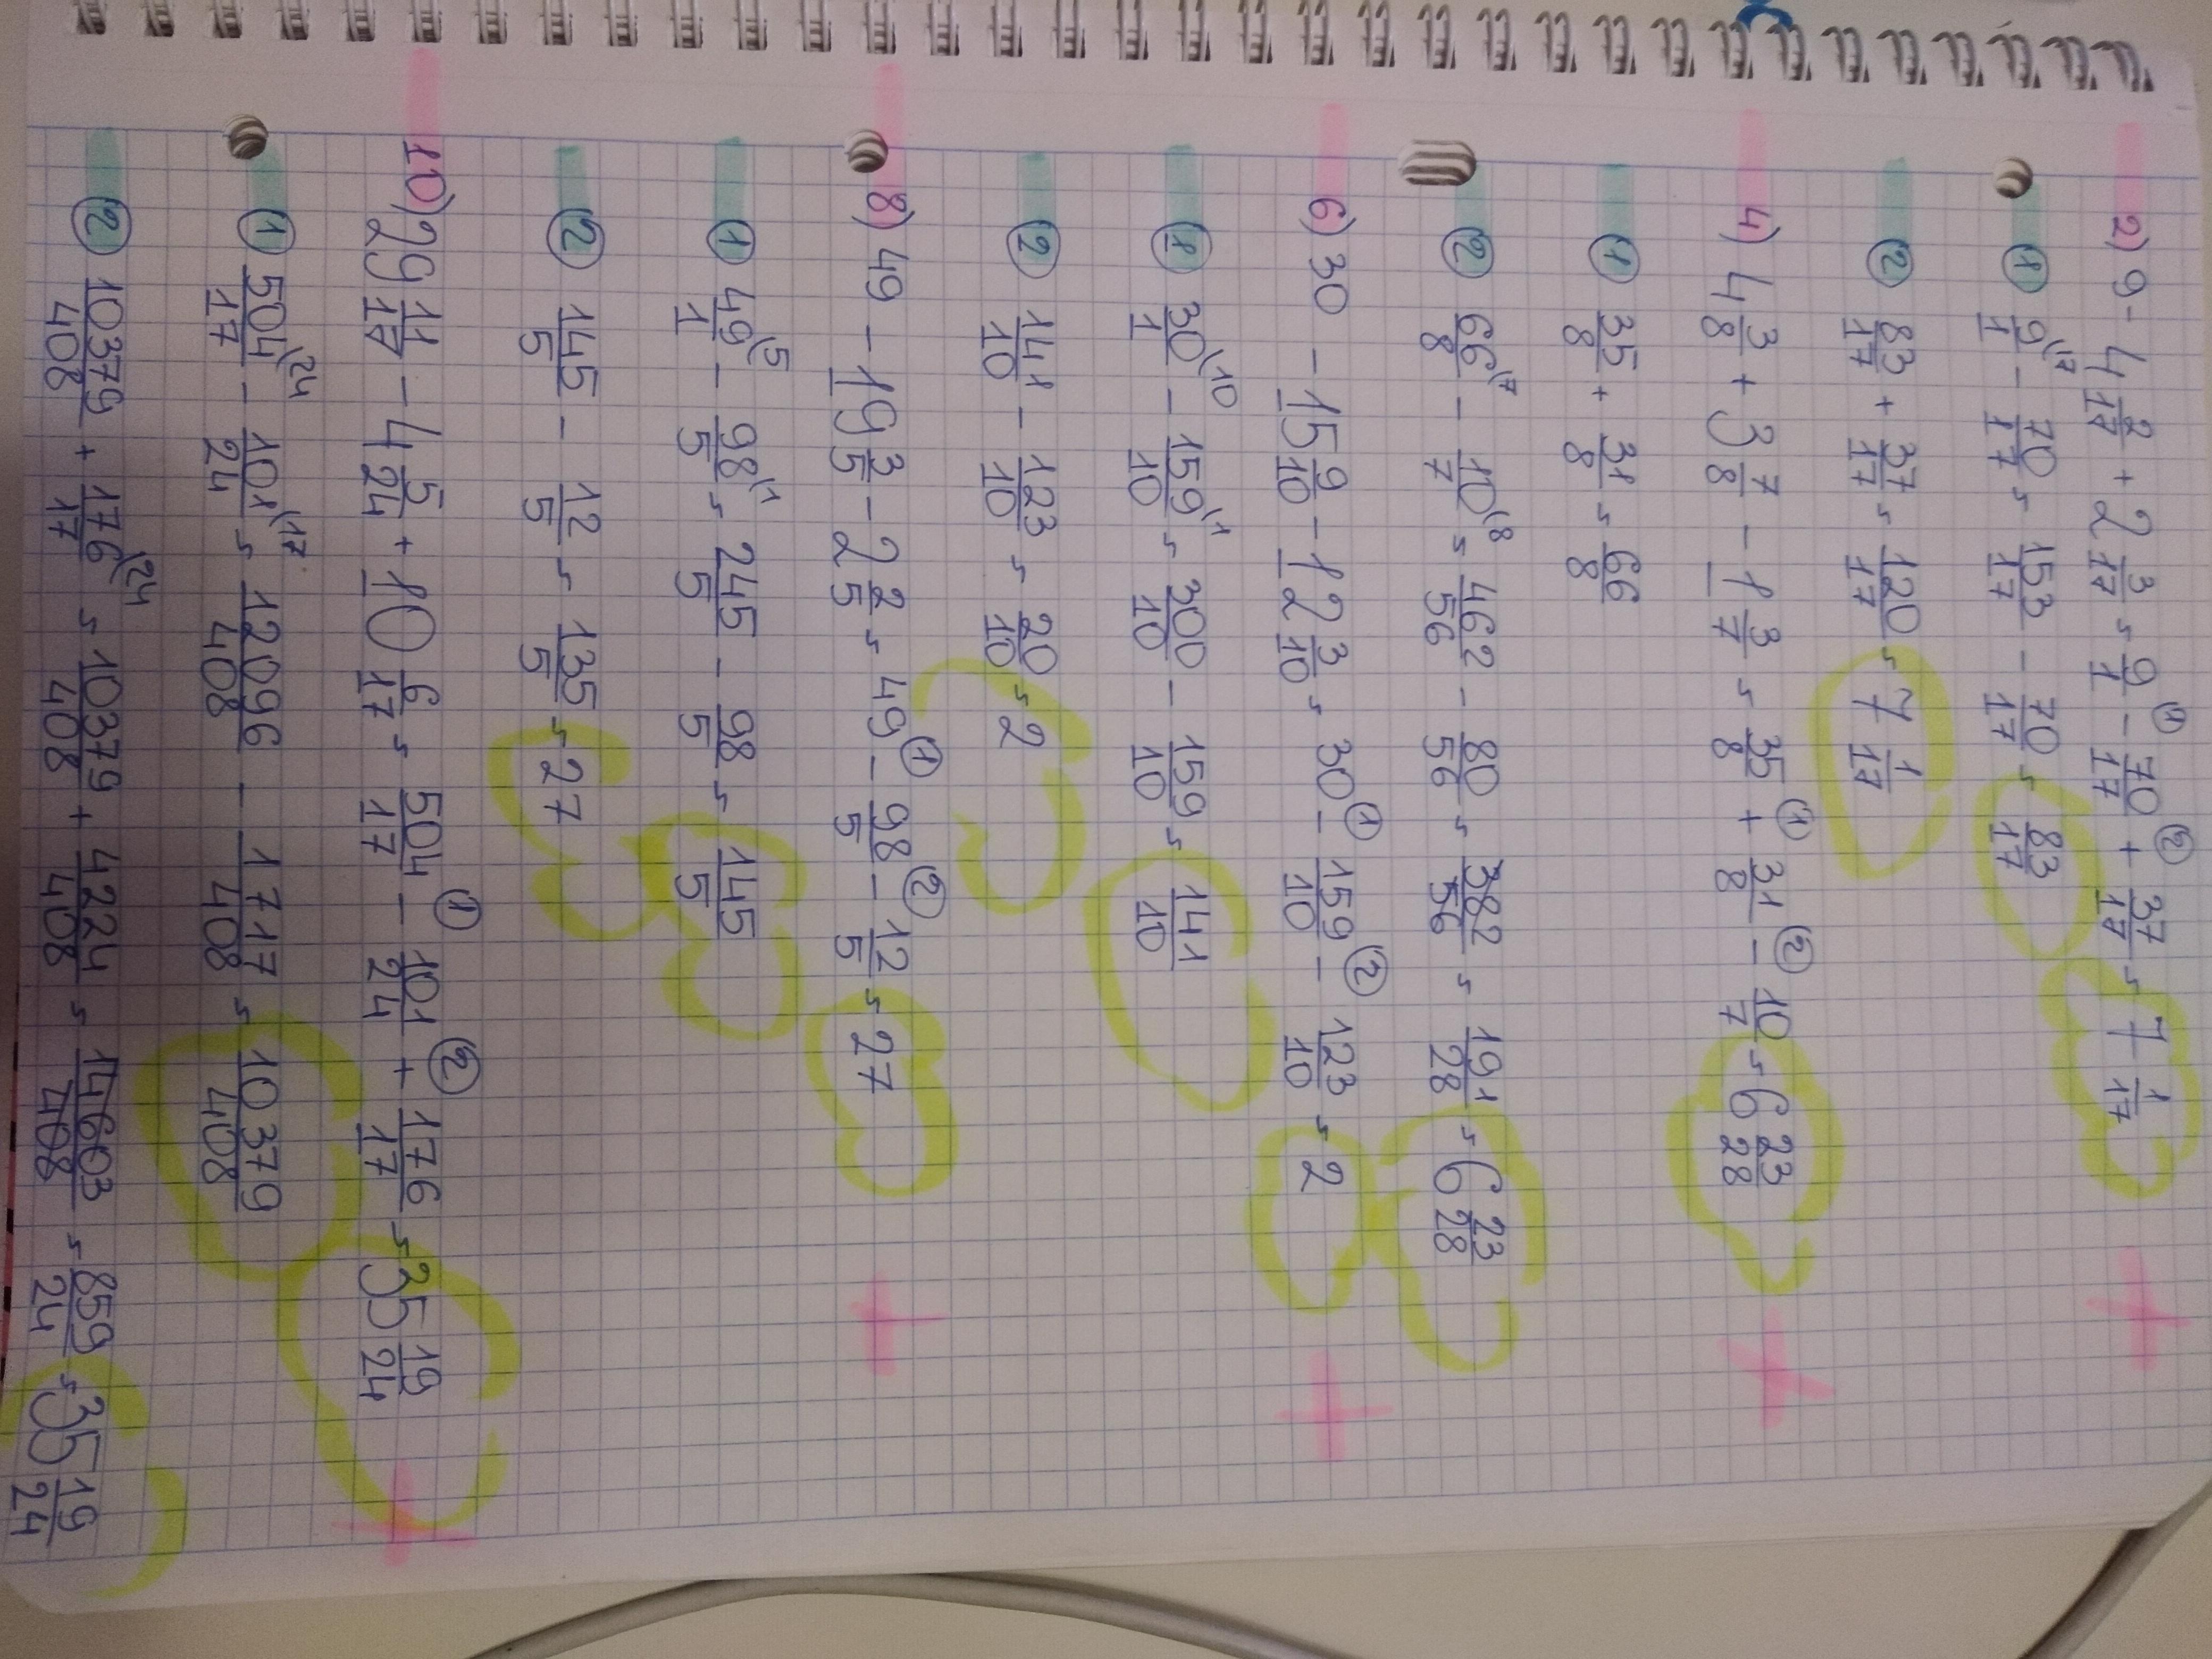 2) 9 - 4 2/17 + 2 3/17 = 9/1 - ① 70/17 + ② 37/17 = 7 1/17
① 9/1 (17 - 70/17 = 153/17 - 70/17 = 83/17
② 83/17 + 37/17 = 120/17 = 7 1/17
4) 4 3/8 + 3 7/8 - 1 3/7 = 35/8 + ① 31/8 - ② 10/7 = 6 23/28
① 35/8 + 31/8 = 66/8
② 66/8 (7 - 10/7 (8 = 462/56 - 80/56 = 382/56 = 191/28 = 6 23/28
6) 30 - 15 9/10 - 12 3/10 = 30 - ① 159/10 - ② 123/10 = 2
① 30/1 (10 - 159/10 (1 = 300/10 - 159/10 = 141/10
② 141/10 - 123/10 = 20/10 = 2
8) 49 - 19 3/5 - 2 2/5 = 49 - ① 98/5 - ② 12/5 = 27
① 49/1 (5 - 98/5 (1 = 245/5 - 98/5 = 145/5
② 145/5 - 12/5 = 135/5 = 27
10) 29 11/17 - 4 5/24 + 10 6/17 = 504/17 - ① 101/24 + ② 176/17 = 35 19/24
① 504/17 (24 - 101/24 (17 = 12096/408 - 1717/408 = 10379/408
② 10379/408 + 176/17 (24 = 10379/408 + 4224/408 = 14603/408 = 859/24 = 35 19/24